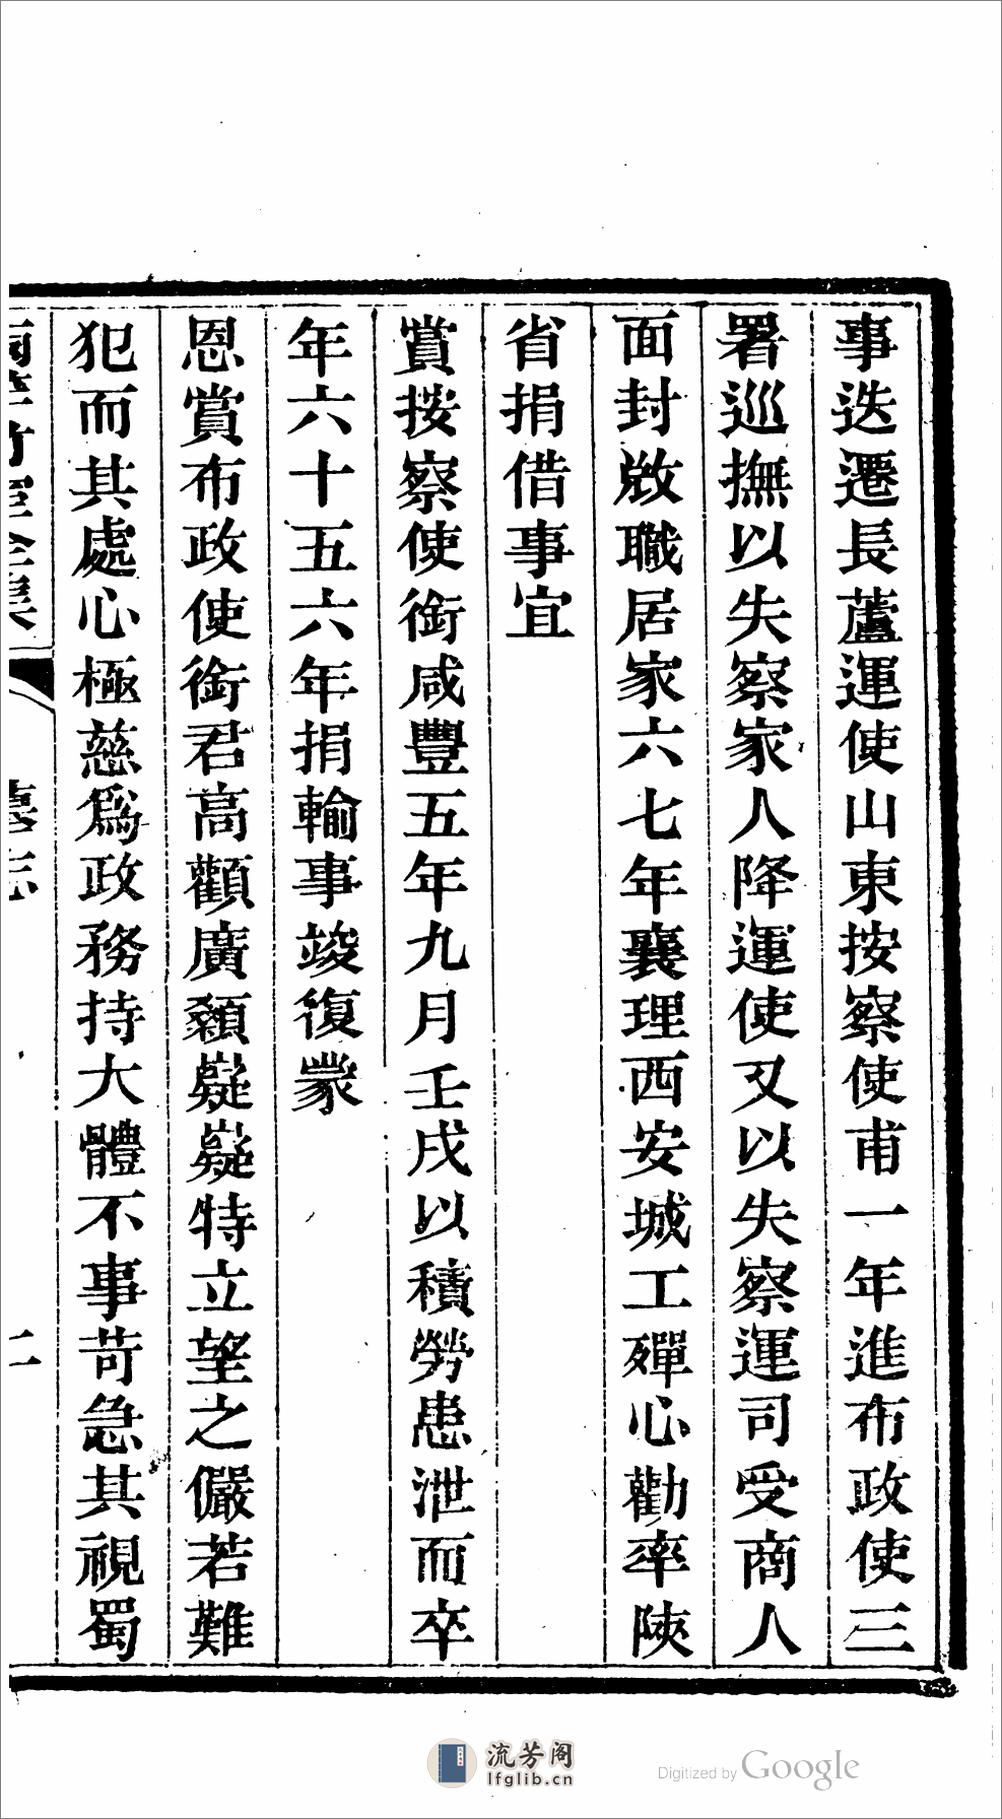 事迭遷長蘆運使山東按察使甫一年進布政使三
署巡撫以失察家人降運使又以失察運司受商人
面封啟職居家六七年襄理西安城工殫心勸率陝
省捐借事宜
賞按察使銜咸豐五年九月壬戌以積勞患泄而卒
年六十五六年捐輸事竣復蒙
恩賞布政使銜君高顴廣顙嶷嶷特立望之儼若難
犯而其處心極慈爲政務持大體不事苛急其視蜀
二
流芳阁
lfglib.cn
Digitized by Google